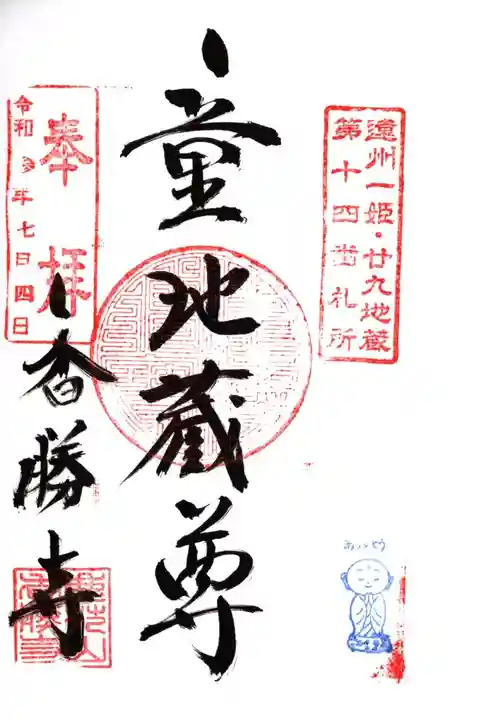 遠州一姫・廿九地蔵
第十四番札所
童地蔵尊
奉拝
令和 年七日四日
香勝寺
ありがとう